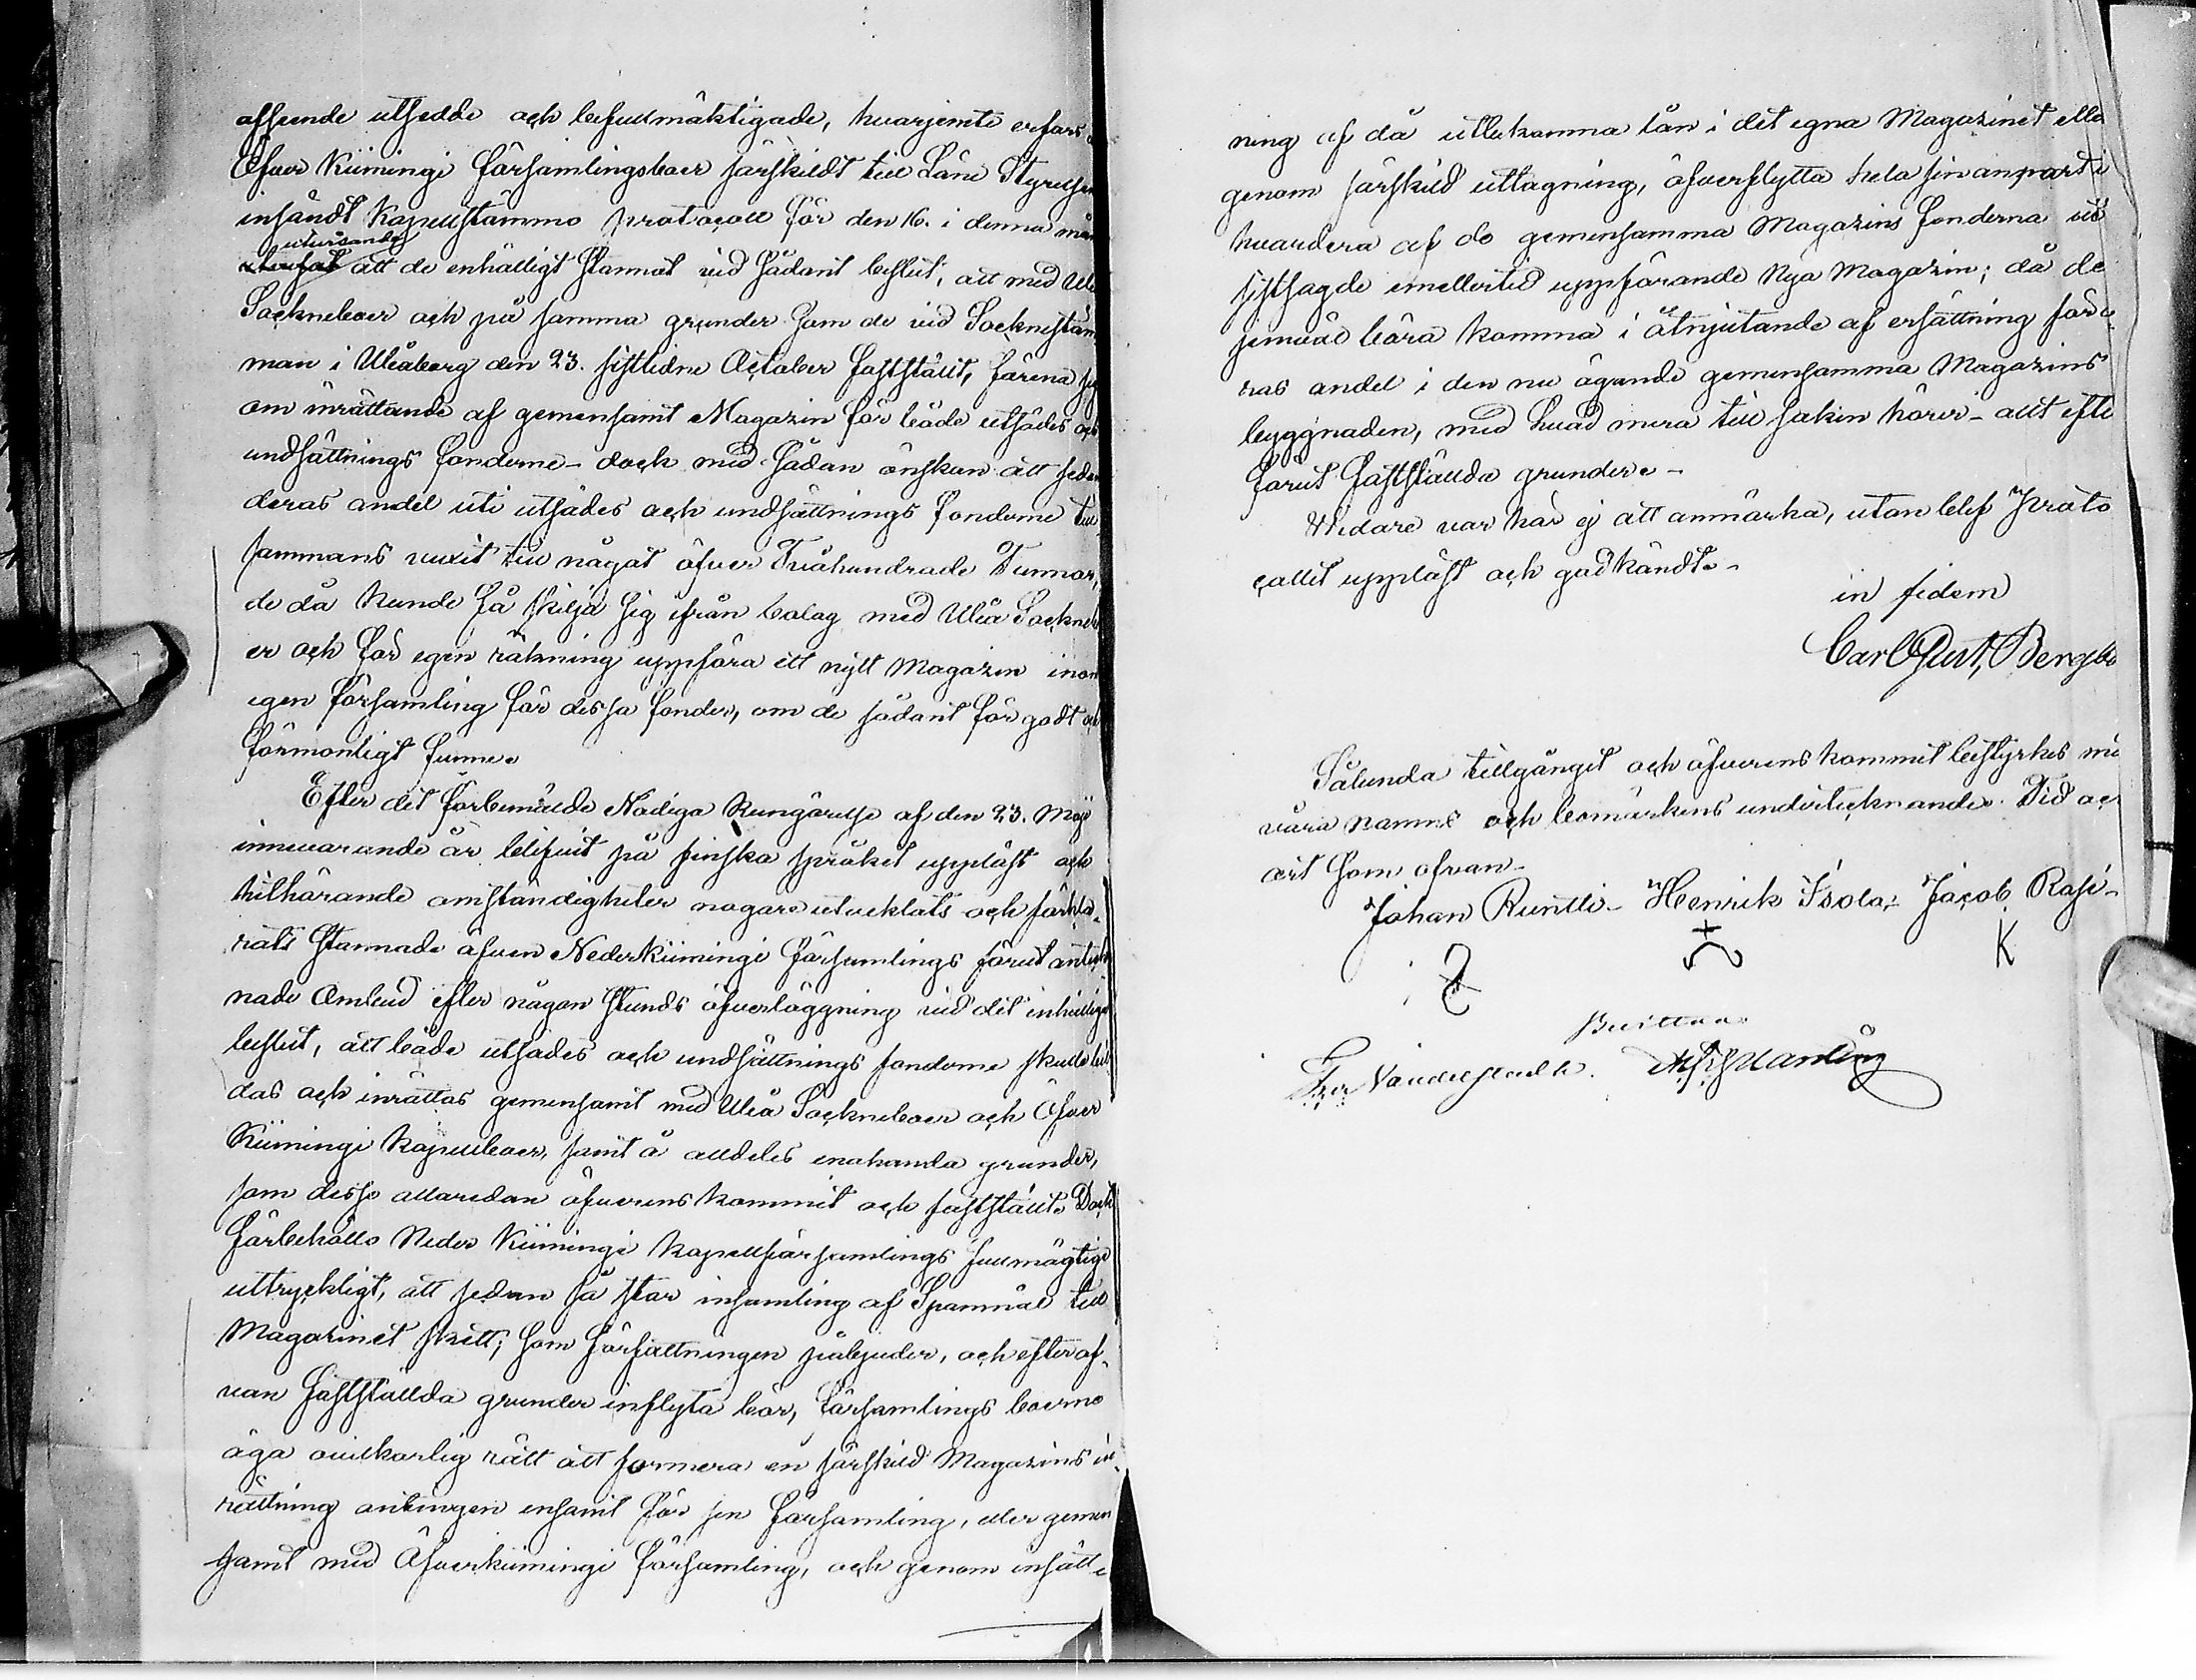 afseende utsedde och befullmäktigade, hvarjemte erfars
Öfver Kiimingi Församlingsboer särskildt till Läne Styrelsen
insändt Kapellstämmo protocoll för den 16. i denna mån
utvisande
att de enhälligt stannat vid sådant beslut, att med Uleå
Sockneboer och på samma grunder som de vid Sockneståm
man i Uleåborg den 23. sistledne October fastställt, förena sig
om inrättande af gemensamt Magazin för både utsädes och
undsättnings fonderne - dock med sådan önskan att sedan
deras andel uti utsädes och undsättnings fonderne till
sammans vuxit till något öfver Tvåhundrade Tunnor,
de då kunde få skilja sig ifrån bolag med Uleå Sockneb
er och för egen räkning uppföra ett nytt Magazin inom
egen församling för dessa fonder, om de sådant för godt och
förmonligt funne.
Efter det förbemälde Nådiga Kungörelse af den 23. Maji
innevarande år blifvit på finska språket uppläst och
tillhörande omständigheter nogare utvecklats och förkla-
rats stannade äfven Nederkiimingi Församlings förut anteck-
nade Ombud efter någon stunds öfverläggning vid det enhälliga
beslut, att både utsädes och undsättnings fonderne skulle bil-
das och inrättas gemensamt med Uleå Sockneboer och Öfver
Kiimingi Kapellboer, samt å alldeles enahanda grunder,
som desse allaredan öfverens kommit och fastställt. Dock
förbehöllo Neder Kiimingi Kapellförsamlings fullmägtige
uttryckligt, att sedan så stor insamling af Spannmål till
Magazinet skett, som Författningen påbjuder, och efter of-
van fastställda grunder inflyta bör, Församlings boerne
äga ovilkorlig rätt att formera en särskild Magazins in-
rättning antingen ensamt för sin Församling, eller gemen
samt med Öfverkiimingi Församling, och genom insätt-
ning af då utlekomna lån i det egna Magazinet elle
genom särskild uttagning, öfverflytta hela sin anpart i
hvardera af de gemensamma Magazins fonderna uti
sistsagde emellertid uppförande nya Magazin; då de
jemväl böra komma i åtnjutande af ersättning för de
ras andel i den nu ägande gemensamma Magazins
byggnaden, med hvad mera till saken hörer - allt efter
förut fastställda grunder. -
Widare var här ej att anmärka, utan blef Proto
collet uppläst och godkändt. -
in fidem
Carl Gust, Bergbo
Sålunda tillgånget och öfverens kommet bestyrkes me
våra namns och bomärkens undertecknande. Tid oc
ort som ofvan -
Johan Runtti - Henrik Isola - Jacob Rasi -
K